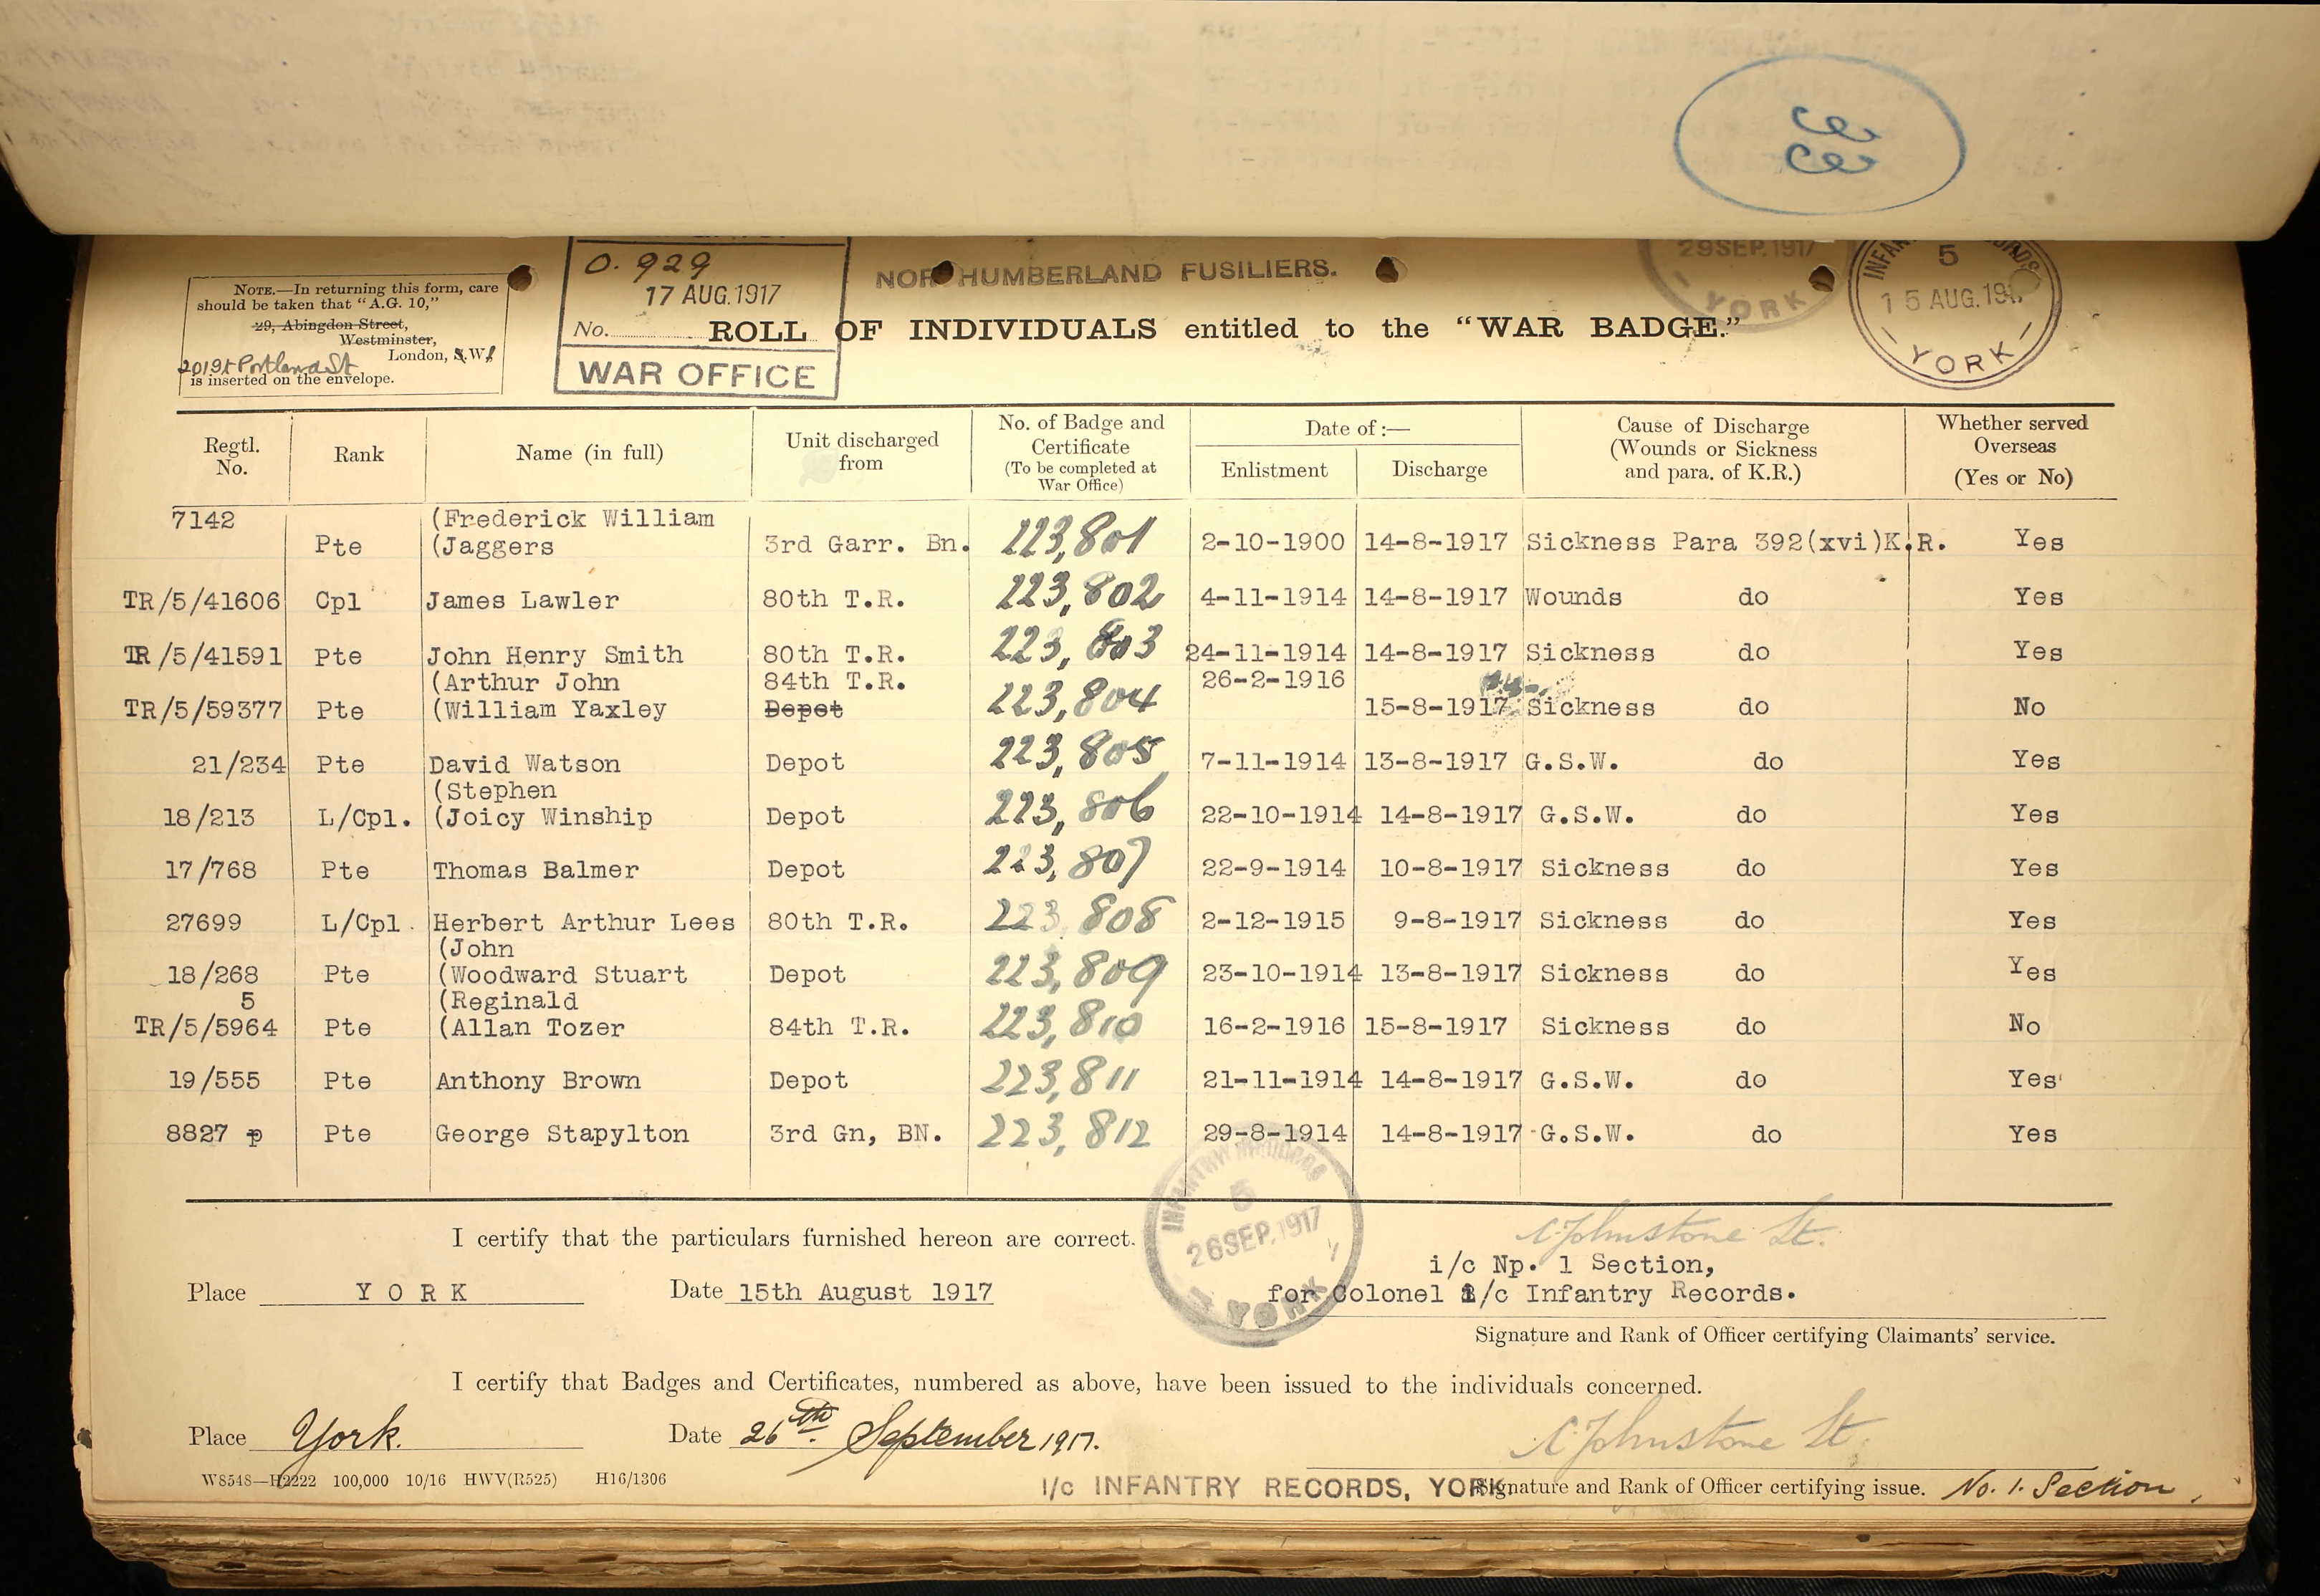 29 SEP. 1917
YORK
5
15 AUG. 191
YORK
O. 929
17 AUG. 1917
No.
WAR OFFICE
NORTHUMBERLAND FUSILIERS.
NOTE.—In returning this form, care
should be taken that "A.G. 10,"
29, Abingdon Street,
Westminster,
London, S.W.1
Portland St
is inserted on the envelope.
ROLL OF INDIVIDUALS entitled to the "WAR BADGE."
Regtl. No. Rank Name (in full) Unit discharged from No. of Badge and Certificate (To be completed at War Office) Date of :— Enlistment Discharge Cause of Discharge (Wounds or Sickness and para. of K.R.) Whether served Overseas (Yes or No)
7142 (Frederick William
Pte (Jaggers 3rd Garr. Bn. 223,801 2-10-1900 14-8-1917 Sickness Para 392(xvi)K.R. Yes
TR/5/41606 Cpl James Lawler 80th T.R. 223,802 4-11-1914 14-8-1917 Wounds do Yes
TR/5/41591 Pte John Henry Smith 80th T.R. 223,803 24-11-1914 14-8-1917 Sickness do Yes
(Arthur John 84th T.R. 26-2-1916
TR/5/59377 Pte (William Yaxley Depot 223,804 15-8-1917 Sickness do No
21/234 Pte David Watson Depot 223,805 7-11-1914 13-8-1917 G.S.W. do Yes
(Stephen
18/213 L/Cpl. (Joicy Winship Depot 223,806 22-10-1914 14-8-1917 G.S.W. do Yes
17/768 Pte Thomas Balmer Depot 223,807 22-9-1914 10-8-1917 Sickness do Yes
27699 L/Cpl. Herbert Arthur Lees 80th T.R. 223,808 2-12-1915 9-8-1917 Sickness do Yes
(John
18/268 Pte (Woodward Stuart Depot 223,809 23-10-1914 13-8-1917 Sickness do Yes
5 (Reginald
TR/5/5964 Pte (Allan Tozer 84th T.R. 223,810 16-2-1916 15-8-1917 Sickness do No
19/555 Pte Anthony Brown Depot 223,811 21-11-1914 14-8-1917 G.S.W. do Yes
8827 p Pte George Stapylton 3rd Gn, BN. 223,812 29-8-1914 14-8-1917 G.S.W. do Yes
INFANTRY RECORDS
5
26 SEP. 1917
YORK
I certify that the particulars furnished hereon are correct.
Johnstone Lt.
i/c Np. 1 Section,
Place YORK Date 15th August 1917 for Colonel i/c Infantry Records.
Signature and Rank of Officer certifying Claimants' service.
I certify that Badges and Certificates, numbered as above, have been issued to the individuals concerned.
Place York. Date 26th September 1917. Johnstone Lt.
W8548—H2222 100,000 10/16 HWV(R525) H16/1306
I/c INFANTRY RECORDS, YORK. Signature and Rank of Officer certifying issue. No. 1. Section,